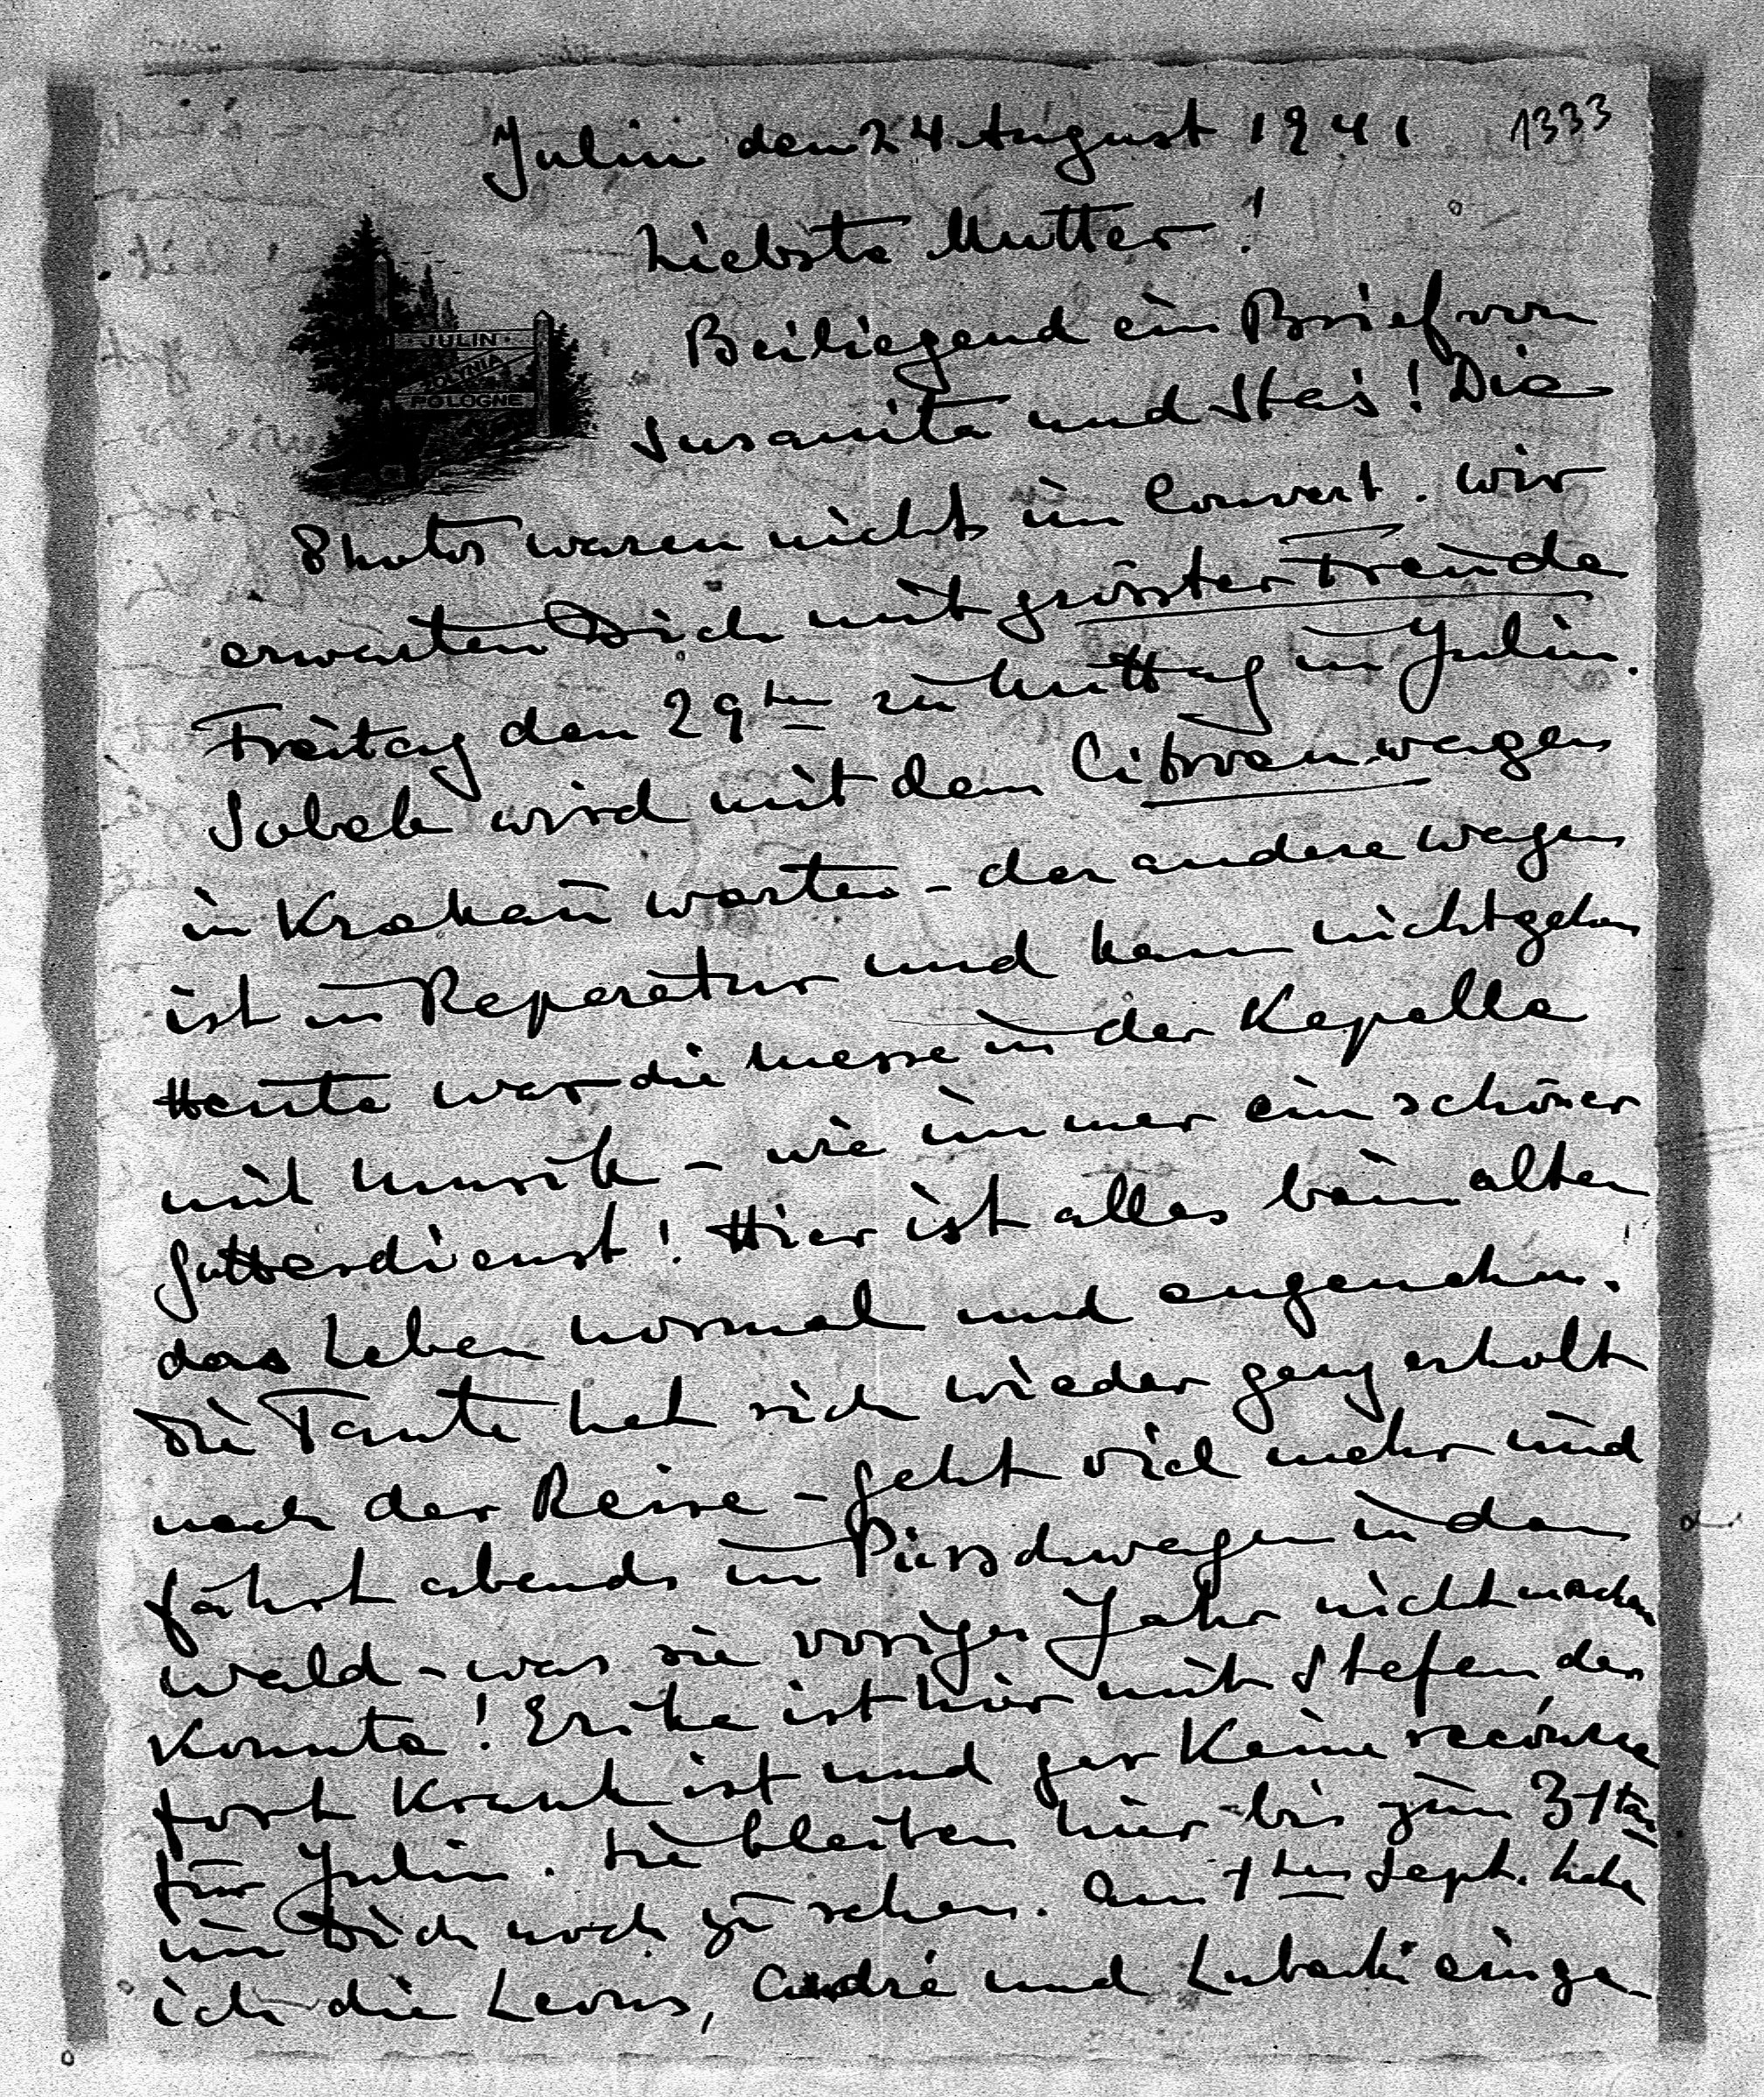 Julin den 24 August 1941
1333
Liebste Mutter!
Beiliegend ein Brief von
JULIN
POLOGNE
Susanita und Stas! Die
Photos waren nicht im Couvert. Wir
erwarten Dich mit grösster Freude
Freitag den 29ten zu Mittag in Julin.
Sobek wird mit dem Citroenwagen
in Krakau warten – der andere Wagen
ist in Reparatur und kann nicht gehen
Heute war die Messe in der Kapelle
mit Musik – wie immer ein schöner
Gottesdienst! Hier ist alles beim alten
das Leben normal und angenehm.
Die Tante hat sich wieder ganz erholt
nach der Reise – geht viel mehr und
fährt abends im Pirschwagen in den
Wald – was sie voriges Jahr nicht machen
konnte! Erika ist hier mit Stefan der
fort krank ist und gar keine
für Julin. Sie bleiben hier bis zum 31ten
um Dich noch zu sehen. Am 1ten Sept. habe
ich die Leons, André und Lubecki einge-